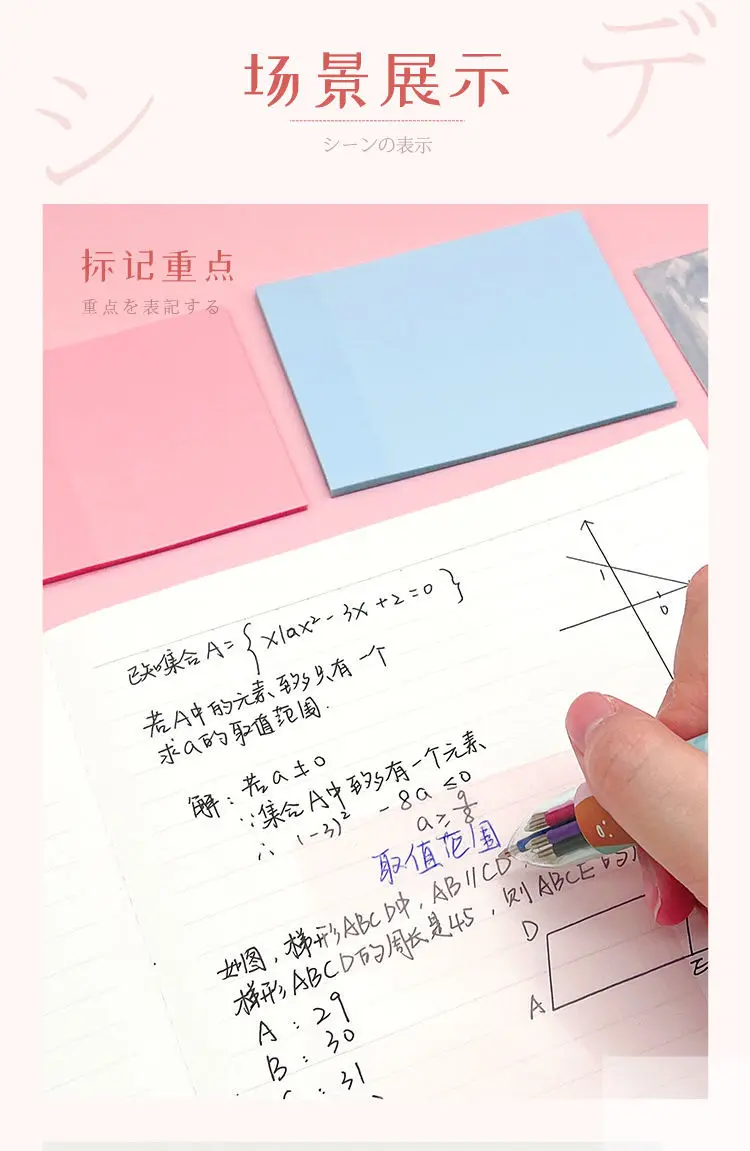 シデ
场景展示
シーンの表示
标记重点
重点を表記する
已知集合A={x|ax²-3x+2=0}
若A中的元素至多只有一个
求a的取值范围.
解:若a±0
∵集合A中至多有一个元素
∴(-3)²-8a≤0
a≥9/8
取值范围
1
0
如图,梯形ABCD中,AB∥CD
梯形ABCD的周长是45,则ABCE的
D
A
E
A:29
B:30
:31